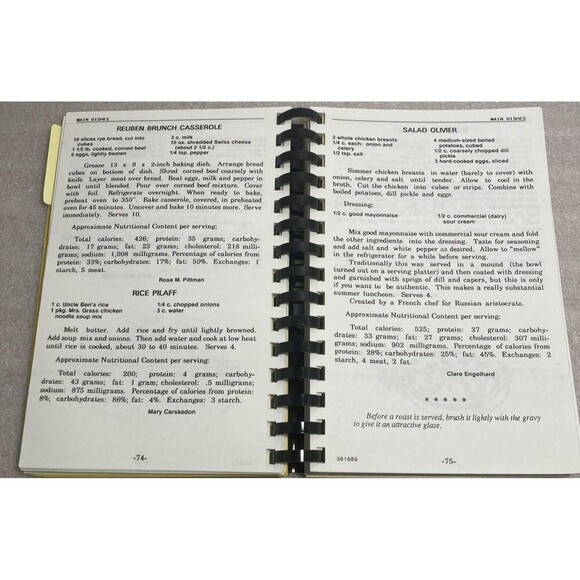 MAIN DISHES
REUBEN BRUNCH CASSEROLE
10 slices rye bread, cut into
cubes
1 1/2 lb. cooked, corned beef
6 eggs, lightly beaten
3 c. milk
10 oz. shredded Swiss cheese
(about 2 1/2 c.)
1/4 tsp. pepper
Grease 13 x 9 x 2-inch baking dish. Arrange bread
cubes on bottom of dish. Shred corned beef coarsely with
knife. Layer meat over bread. Beat eggs, milk and pepper in
bowl until blended. Pour over corned beef mixture. Cover
with foil. Refrigerate overnight. When ready to bake,
preheat oven to 350°. Bake casserole, covered, in preheated
oven for 45 minutes. Uncover and bake 10 minutes more. Serve
immediately. Serves 10.
Approximate Nutritional Content per serving:
Total calories: 426; protein: 35 grams; carbohy-
drates: 17 grams; fat: 23 grams; cholesterol: 218 milli-
grams; sodium: 1,008 milligrams. Percentage of calories from
protein: 33%; carbohydrates: 17%; fat: 50%. Exchanges: 1
starch, 5 meat.
Rose M. Pittman
RICE PILAFF
1 c. Uncle Ben's rice
1 pkg. Mrs. Grass chicken
noodle soup mix
1/4 c. chopped onions
3 c. water
Melt butter. Add rice and fry until lightly browned.
Add soup mix and onions. Then add water and cook at low heat
until rice is cooked, about 30 to 40 minutes. Serves 4.
Approximate Nutritional Content per serving:
Total calories: 200; protein: 4 grams; carbohy-
drates: 43 grams; fat: 1 gram; cholesterol: .5 milligrams;
sodium: 875 milligrams. Percentage of calories from protein:
8%; carbohydrates: 86%; fat: 4%. Exchanges: 3 starch.
Mary Carskadon
-74-
MAIN DISHES
SALAD OLIVIER
2 whole chicken breasts
1/4 c. each: onion and
celery
1/2 tsp. salt
4 medium-sized boiled
potatoes, cubed
1/2 c. coarsely chopped dill
pickle
3 hard-cooked eggs, sliced
Simmer chicken breasts in water (barely to cover) with
onion, celery and salt until tender. Allow to cool in the
broth. Cut the chicken into cubes or strips. Combine with
boiled potatoes, dill pickles, and eggs.
Dressing:
1/2 c. good mayonnaise
1/2 c. commercial (dairy)
sour cream
Mix good mayonnaise with commercial sour cream and fold
the other ingredients into the dressing. Taste for seasoning
and add salt and white pepper as desired. Allow to "mellow"
in the refrigerator for a while before serving.
Traditionally this was served in a mound (the bowl
turned out on a serving platter) and then coated with dressing
and garnished with sprigs of dill and capers, but this is only
if you want to be authentic. This makes a really substantial
summer luncheon. Serves 4.
Created by a French chef for Russian aristocrats.
Approximate Nutritional Content per serving:
Total calories: 525; protein: 37 grams; carbohy-
drates: 33 grams; fat: 27 grams; cholesterol: 307 milli-
grams; sodium: 902 milligrams. Percentage of calories from
protein: 28%; carbohydrates: 25%; fat: 45%. Exchanges: 2
starch, 4 meat, 2 fat.
Clare Engelhard
* * * * *
Before a roast is served, brush it lightly with the gravy
to give it an attractive glaze.
381689
-75-